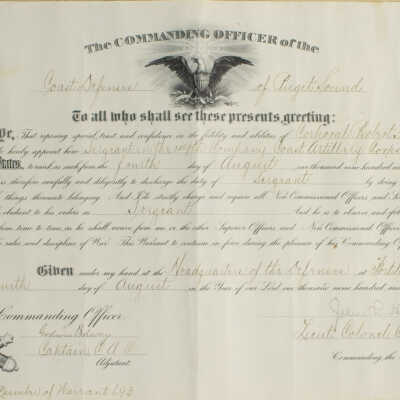 The COMMANDING OFFICER of the
Coast Defenses of Puget Sound
To all who shall see these presents, greeting:
That reposing special trust and confidence in the fidelity and abilities of Corporal Robert
hereby appoint him Sergeant Company Coast Artillery Corps
States, to rank as such from the fourth day of August one thousand nine hundred
is therefore carefully and diligently to discharge the duty of Sergeant by doing
things thereunto belonging. And I do strictly charge and require all Non-Commissioned Officers and
obedient to his orders as Sergeant And he is to observe and
from time to time, as he shall receive from me or the other Superior Officers and Non-Commissioned Officers
rules and discipline of War. This Warrant to continue in force during the pleasure of the Commanding Officer
Given under my hand at the Headquarters of the Defenses at Fort
day of August in the Year of our Lord one thousand nine hundred
Commanding Officer
Captain C. A. C. Lieut. Colonel C
Adjutant. Commanding the
Number of Warrant 693